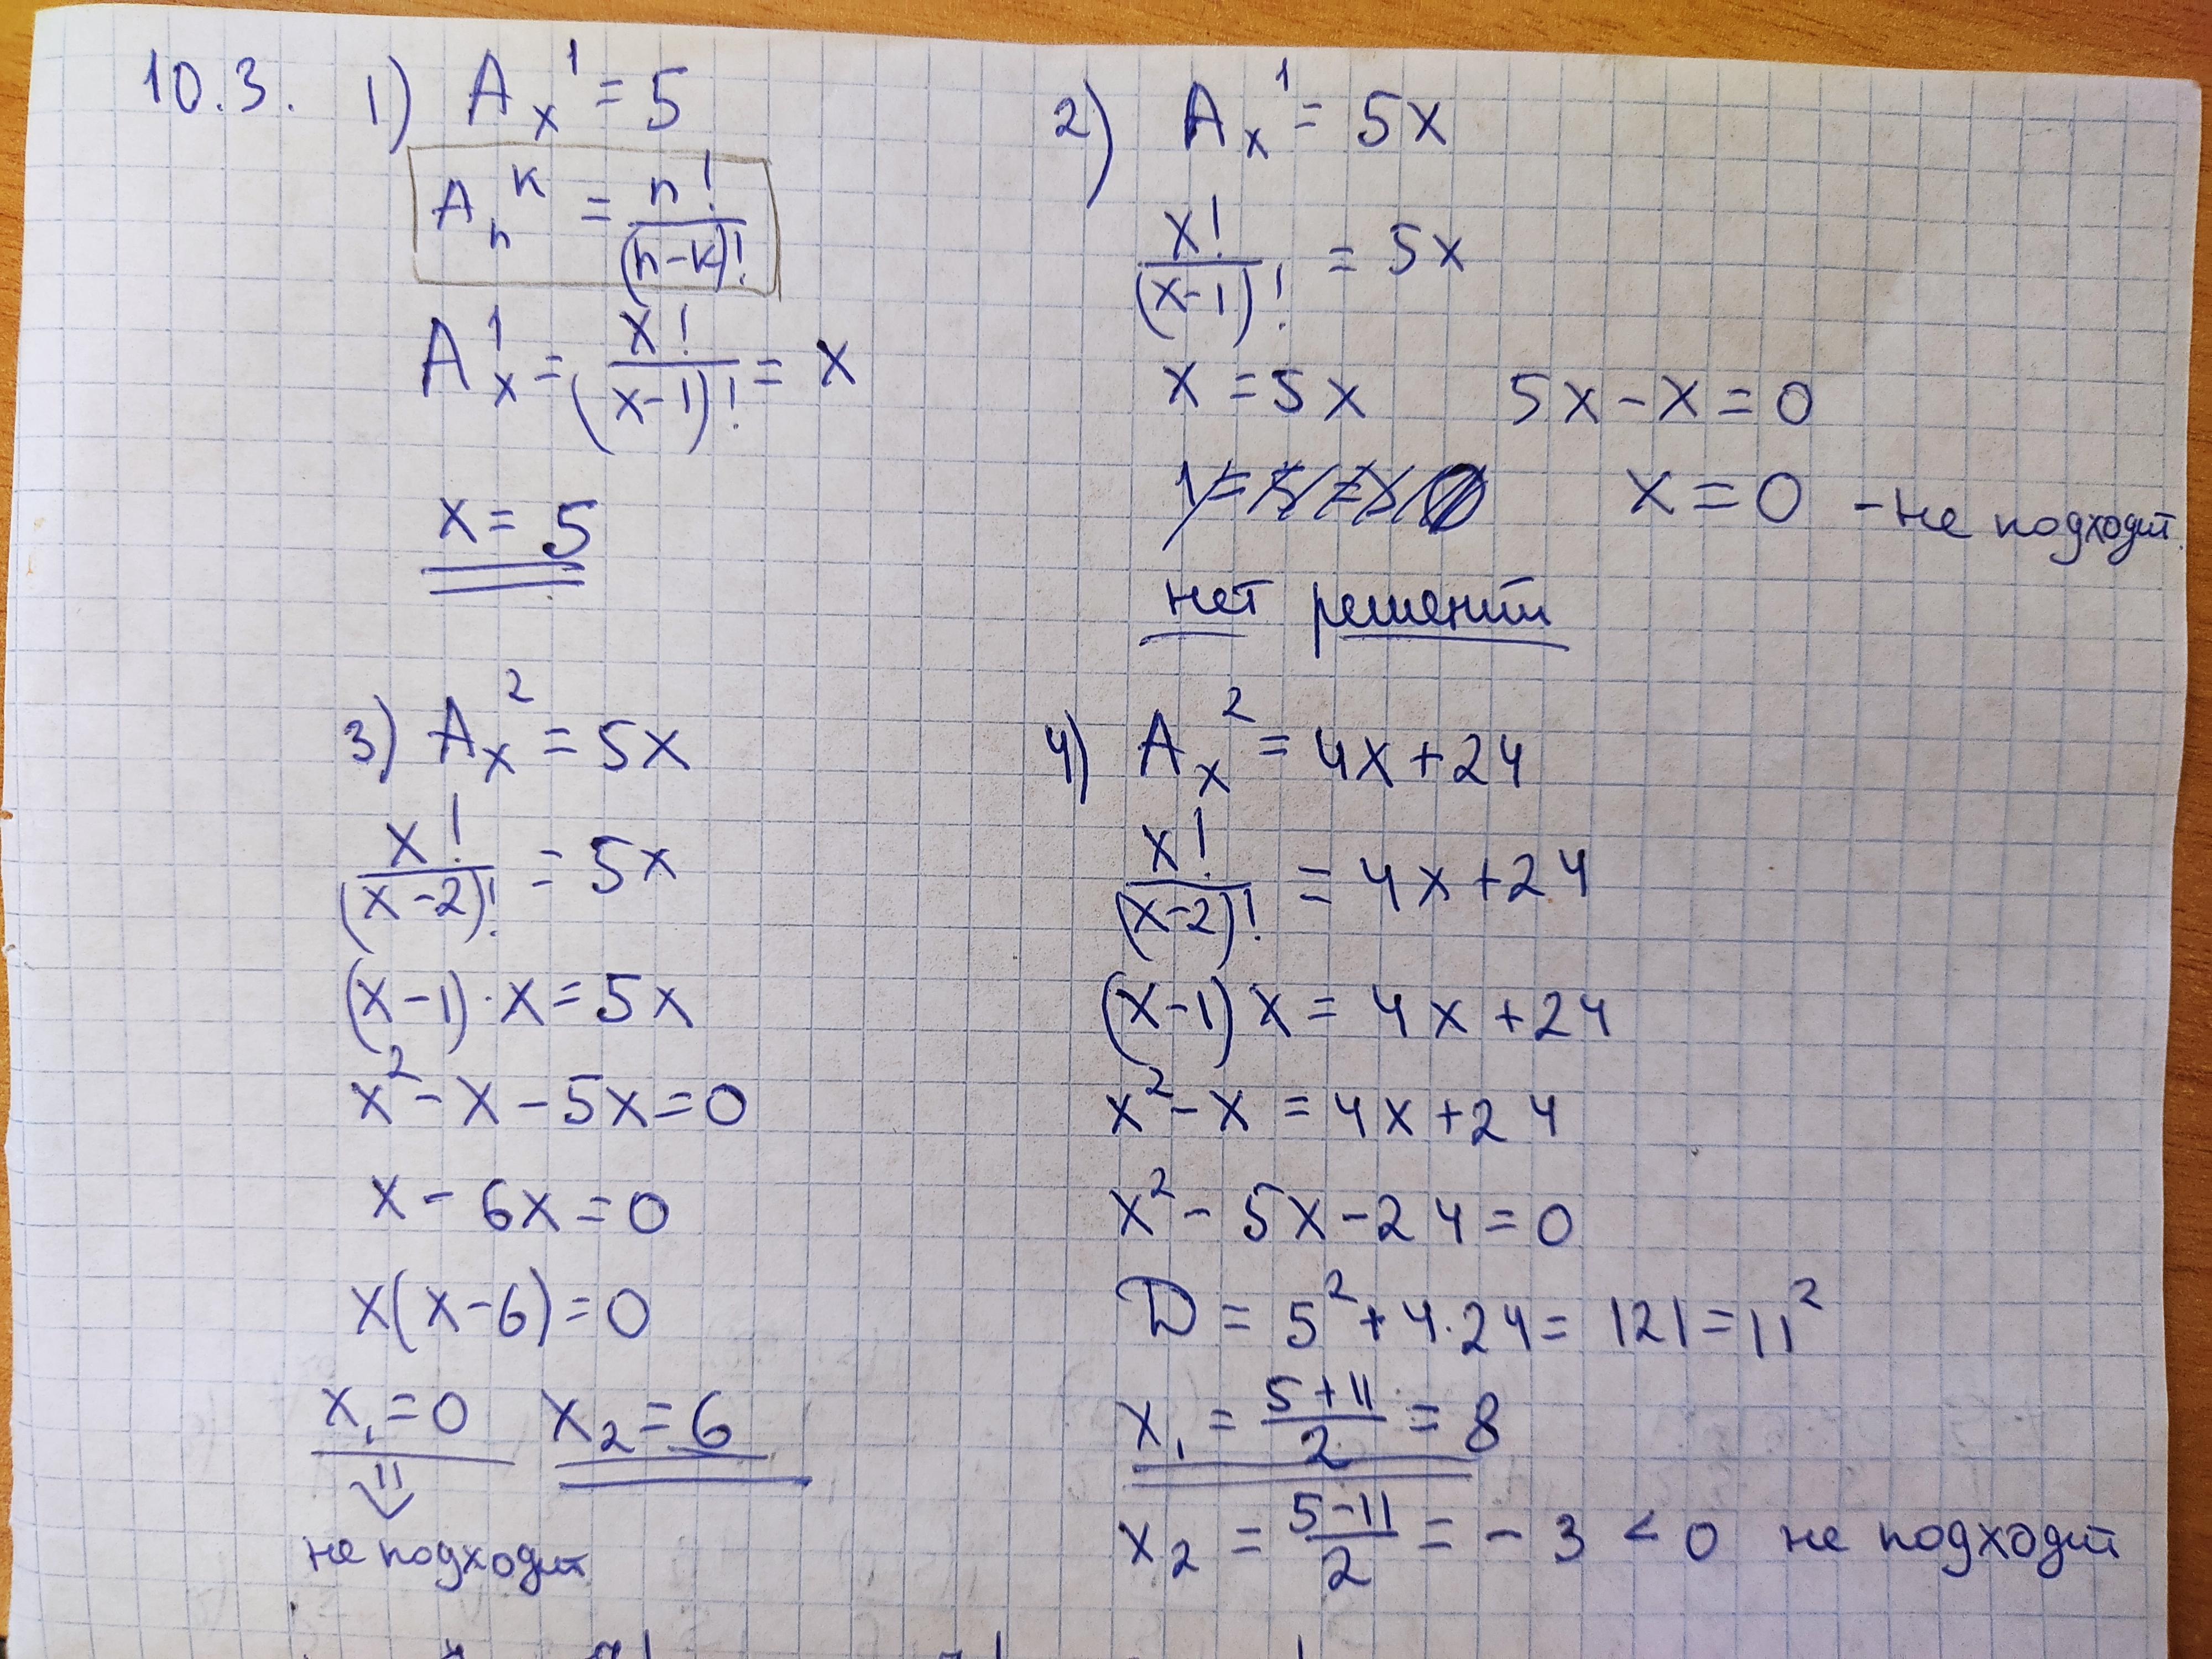 10.3. 1) Aₓ¹ = 5
Aₙᵏ = n! / (n-k)!
Aₓ¹ = x! / (x-1)! = x
x = 5
2) Aₓ¹ = 5x
x! / (x-1)! = 5x
x = 5x 5x - x = 0
x = 0 - не подходит.
нет решений
3) Aₓ² = 5x
x! / (x-2)! = 5x
(x-1)·x = 5x
x² - x - 5x = 0
x - 6x = 0
x(x-6) = 0
x₁ = 0 x₂ = 6
не подходит
4) Aₓ² = 4x + 24
x! / (x-2)! = 4x + 24
(x-1)x = 4x + 24
x² - x = 4x + 24
x² - 5x - 24 = 0
D = 5² + 4·24 = 121 = 11²
x₁ = 5+11 / 2 = 8
x₂ = 5-11 / 2 = -3 < 0 не подходит